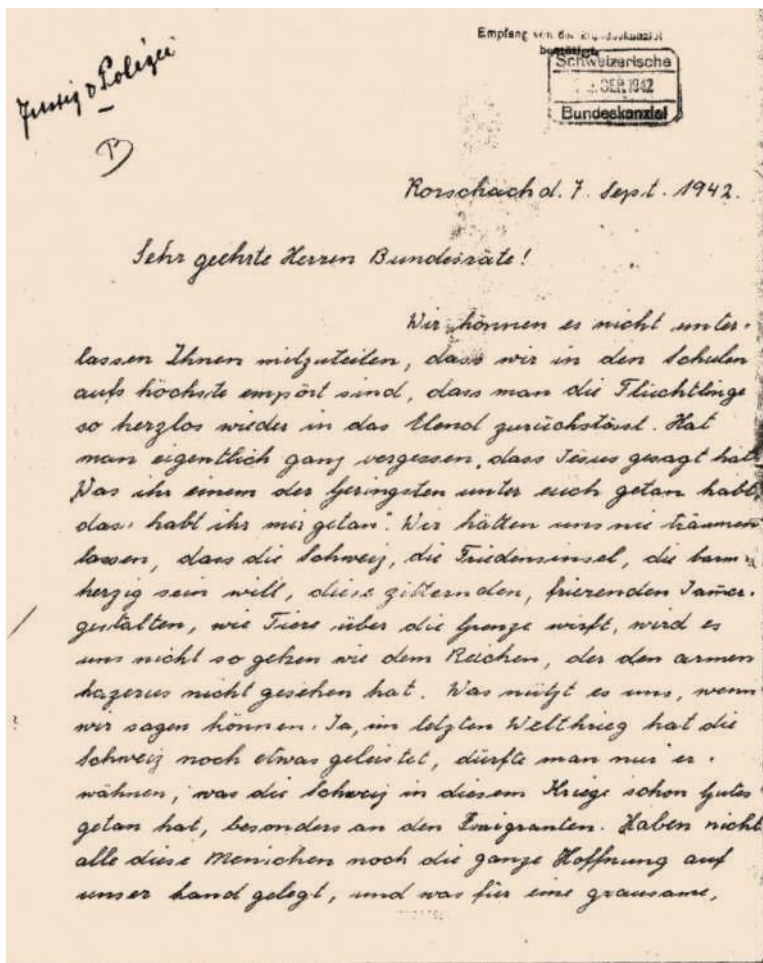 Justiz & Polizei
B
Empfang von der Bundeskanzlei
bestätigt.
Schweizerische
SEP. 1942
Bundeskanzlei
Rorschach d. 7. Sept. 1942.
Sehr geehrte Herren Bundesräte!
Wir können es nicht unter-
lassen Ihnen mitzuteilen, dass wir in den Schulen
aufs höchste empört sind, dass man die Flüchtlinge
so herzlos wieder in das Elend zurückstösst. Hat
man eigentlich ganz vergessen, dass Jesus gesagt hat
"Was ihr einem der Geringsten unter euch getan habt,
das habt ihr mir getan". Wir hätten uns nie träumen
lassen, dass die Schweiz, die Friedensinsel, die barm-
herzig sein will, diese zitternden, frierenden Jam̄er-
gestalten, wie Tiere über die Grenze wirft, wird es
uns nicht so gehen wie dem Reichen, der den armen
Lazerus nicht gesehen hat. Was nützt es uns, wenn
wir sagen können. Ja, im letzten Weltkrieg hat die
Schweiz noch etwas geleistet, dürfte man nur er-
wähnen, was die Schweiz in diesem Kriege schon Gutes
getan hat, besonders an den Emigranten. Haben nicht
alle diese Menschen noch die ganze Hoffnung auf
unser Land gelegt, und was für eine grausame,